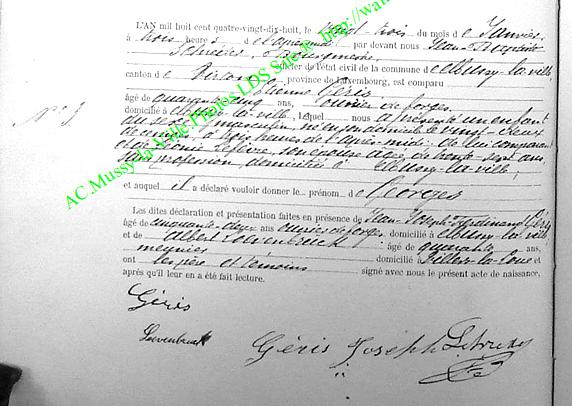 L'AN mil huit cent quatre-vingt-dix-huit, le vingt-trois du mois de Janvier,
à trois heures de l'après-midi par devant nous Jean-Baptiste
Bourgmestre
officier de l'état civil de la commune de Mussy-la-ville,
canton de Virton, province de Luxembourg, est comparu
Étienne Géris
âgé de quarante cinq ans, ouvrier de forges
domicilié à Mussy-la-ville, lequel nous a présenté un enfant
du sexe masculin, né en son domicile le vingt-deux
de ce mois, à trois heures de l'après-midi de lui comparant
et de Léonie Lefèvre, son épouse âgée de trente-sept ans,
sans profession, domiciliée à Mussy-la-ville,
et auquel il a déclaré vouloir donner le prénom de Georges
Les dites déclaration et présentation faites en présence de Jean-Joseph-Ferdinand Géris
âgé de cinquante-deux ans ouvrier de forges domicilié à Mussy-la-ville
et de Albert Levenbruck âgé de quarante ans,
meunier domicilié à Villers-la-Loue et
ont les père et témoins signé avec nous le présent acte de naissance,
après qu'il leur en a été fait lecture.
N° 3
Géris
Levenbruck
Géris Joseph
AC.Mussy-la-Ville Photos LDS Site @ http://wa